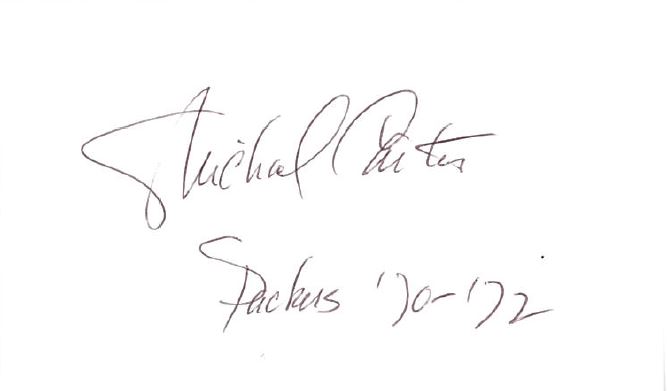 Michael Carter
Packers '70-'72